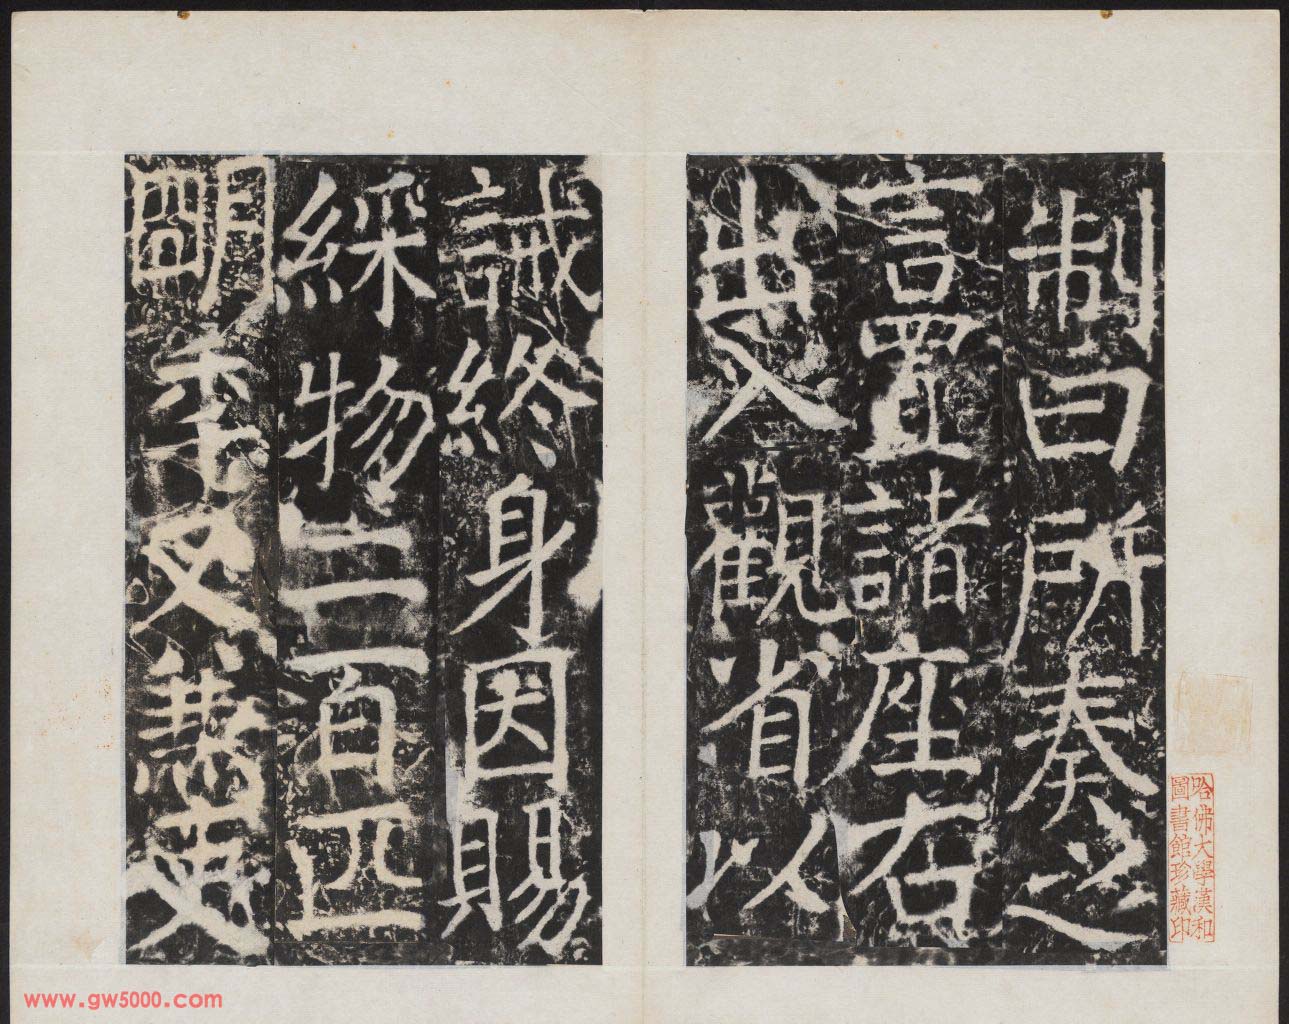 制曰所奏之
言置諸座右
出入觀省以
誡終身因賜
綵物二百匹
明年又兼吏
哈佛大學漢和
圖書館珍藏印
www.gw5000.com